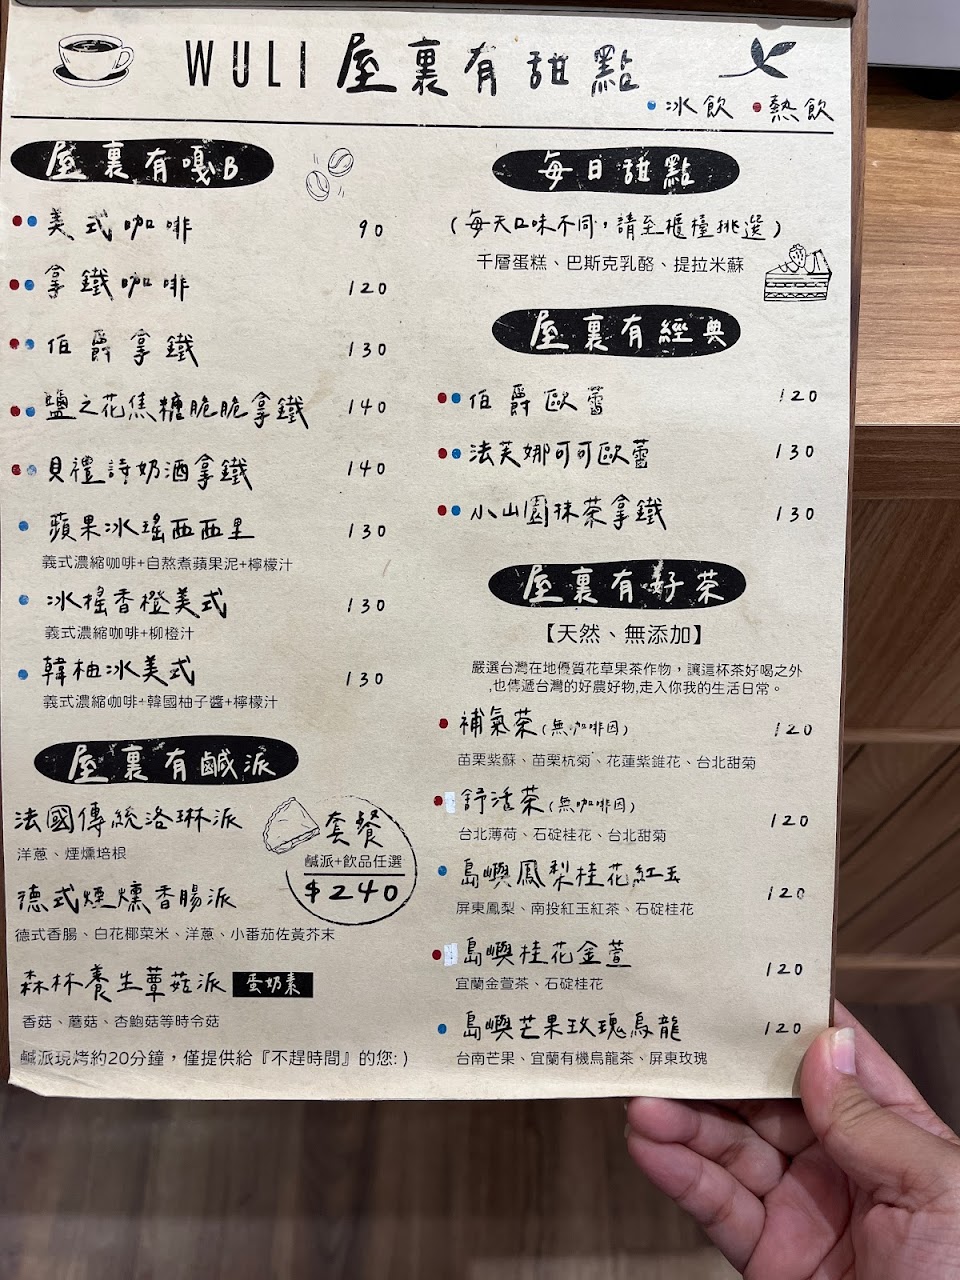 WULI 屋裏有甜點
冰飲 熱飲
屋裏有嘎B
美式咖啡 90
拿鐵咖啡 120
伯爵拿鐵 130
鹽之花焦糖脆脆拿鐵 140
貝禮詩奶酒拿鐵 140
蘋果冰瑤西西里 130
義式濃縮咖啡+自熬煮蘋果泥+檸檬汁
冰搖香橙美式 130
義式濃縮咖啡+柳橙汁
韓柚冰美式 130
義式濃縮咖啡+韓國柚子醬+檸檬汁
屋裏有鹹派
法國傳統洛琳派
洋蔥、煙燻培根
德式煙燻香腸派
德式香腸、白花椰菜米、洋蔥、小番茄佐黃芥末
森林養生蕈菇派 蛋奶素
香菇、蘑菇、杏鮑菇等時令菇
套餐
鹹派+飲品任選
$240
鹹派現烤約20分鐘，僅提供給『不趕時間』的您:)
每日甜點
(每天口味不同，請至櫃檯挑選)
千層蛋糕、巴斯克乳酪、提拉米蘇
屋裏有經典
伯爵歐蕾 120
法芙娜可可歐蕾 130
小山園抹茶拿鐵 130
屋裏有好茶
【天然、無添加】
嚴選台灣在地優質花草果茶作物，讓這杯茶好喝之外
,也傳遞台灣的好農好物,走入你我的生活日常。
補氣茶(無咖啡因) 120
苗栗紫蘇、苗栗杭菊、花蓮紫錐花、台北甜菊
舒活茶(無咖啡因) 120
台北薄荷、石碇桂花、台北甜菊
島嶼鳳梨桂花紅玉 120
屏東鳳梨、南投紅玉紅茶、石碇桂花
島嶼桂花金萱 120
宜蘭金萱茶、石碇桂花
島嶼芒果玫瑰烏龍 120
台南芒果、宜蘭有機烏龍茶、屏東玫瑰